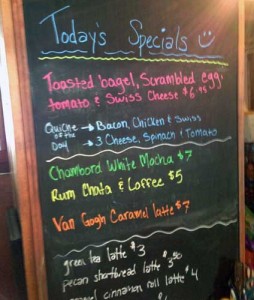 Today's Specials
Toasted bagel, Scrambled egg,
tomato & Swiss Cheese $6.95
Quiche of the Day → Bacon, Chicken & Swiss
→ 3 Cheese, Spinach & Tomato
Chambord White Mocha $7
Rum Chata & Coffee $5
Van Gogh Caramel latte $7
green tea latte $3
pecan shortbread latte $3.50
cinnamon roll latte $4